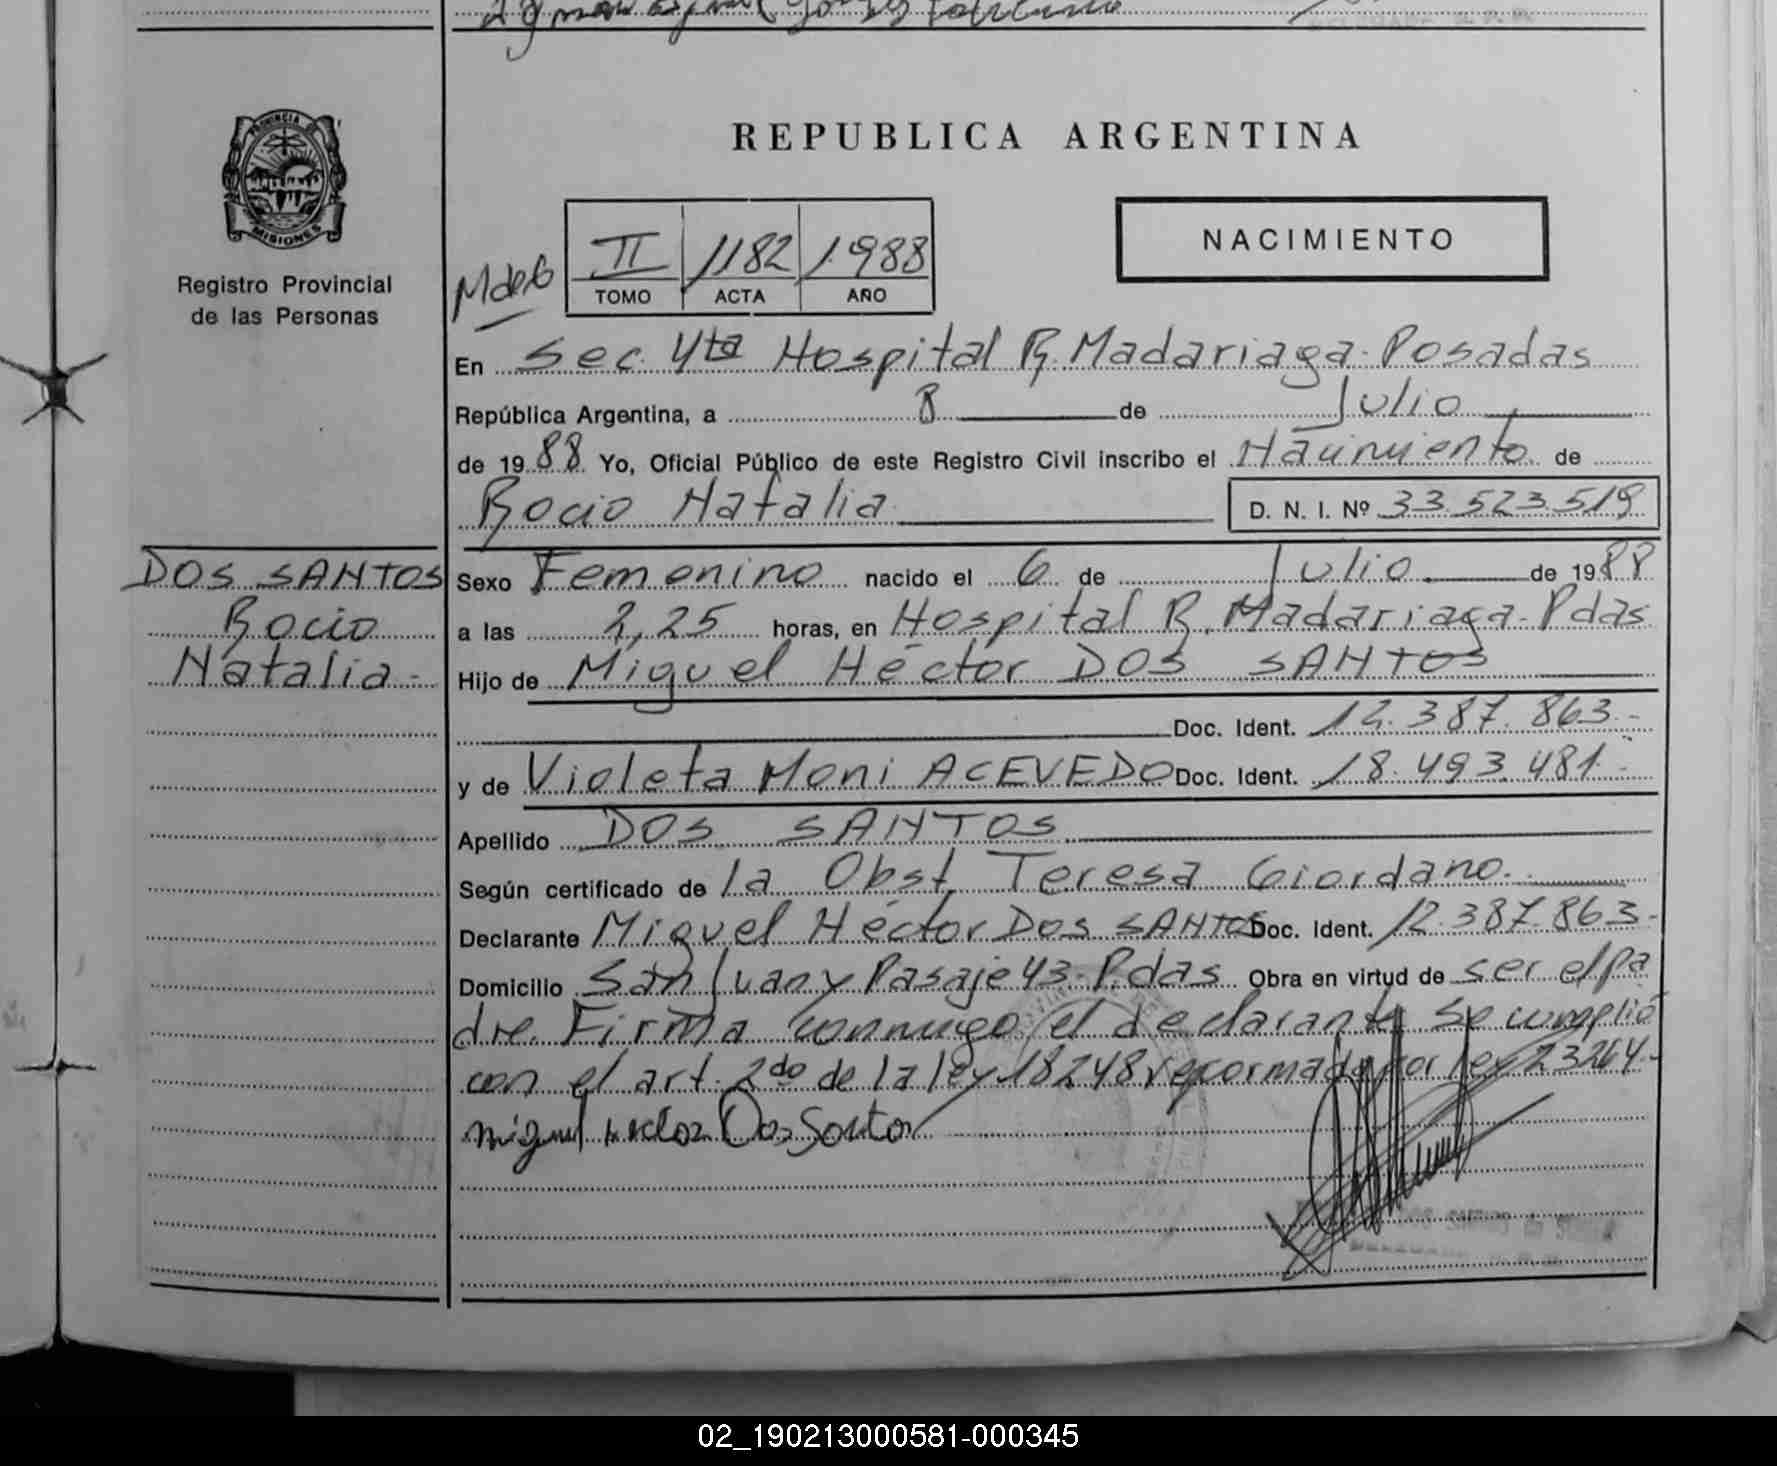 REPUBLICA ARGENTINA
PROVINCIA DE
MISIONES
Registro Provincial
de las Personas
NACIMIENTO
II 1182 1988
TOMO ACTA AÑO
En Sec. 4ta Hospital R. Madariaga. Posadas
República Argentina, a 8 de Julio
de 1988 Yo, Oficial Público de este Registro Civil inscribo el Nacimiento de
Rocio Natalia
D. N. I. Nº 33.523.519
DOS SANTOS
Rocio
Natalia.-
Sexo Femenino nacido el 6 de Julio de 1988
a las 2,25 horas, en Hospital R. Madariaga-Pdas
Hijo de Miguel Héctor DOS SANTOS
Doc. Ident. 12.387.863.-
y de Violeta Noni ACEVEDO Doc. Ident. 18.493.481.-
Apellido DOS SANTOS
Según certificado de la Obst. Teresa Giordano.
Declarante Miguel Héctor Dos SANTOS Doc. Ident. 12.387.863.-
Domicilio San Juan y Pasaje 43-P.das Obra en virtud de ser el pa
dre. Firma conmigo el declarante Se cumplió
con el art. 2do de la ley 18248 reformado por ley 23264.-
Miguel Hector Dos Santos
02_190213000581-000345